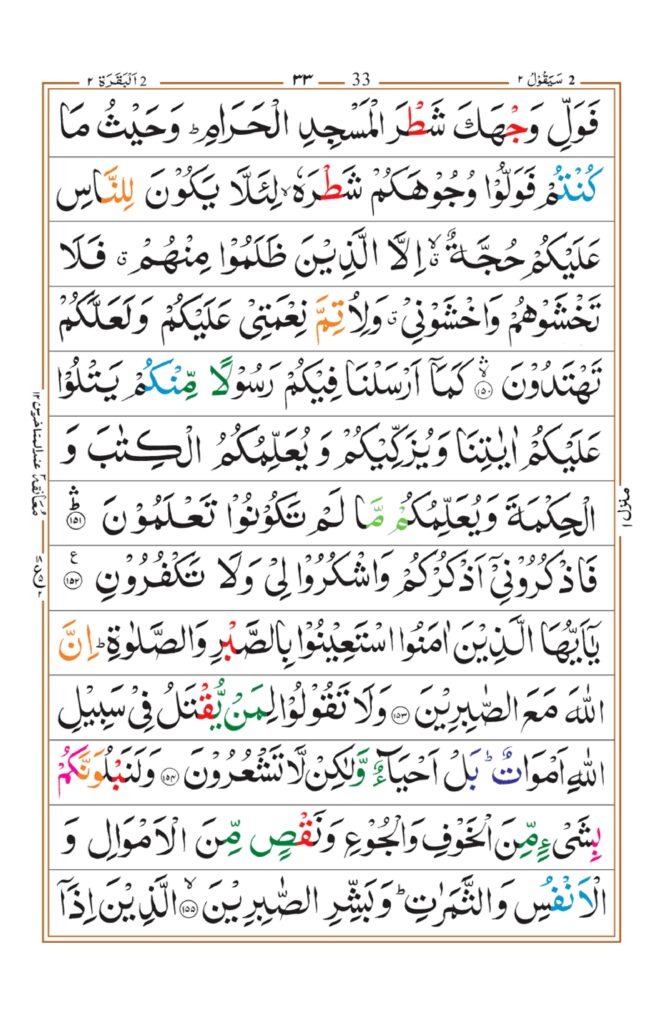 2 اَلْبَقَرَة ٢ ٣٣ 33 2 سَيَقُوْلُ ٢
فَوَلِّ وَجْهَكَ شَطْرَ الْمَسْجِدِ الْحَرَامِ ؕ وَحَيْثُ مَا
كُنْتُمْ فَوَلُّوْا وُجُوْهَكُمْ شَطْرَهٗ ۙ لِئَلَّا يَكُوْنَ لِلنَّاسِ
عَلَيْكُمْ حُجَّةٌ ۙۗ اِلَّا الَّذِيْنَ ظَلَمُوْا مِنْهُمْ ۗ فَلَا
تَخْشَوْهُمْ وَاخْشَوْنِيْ ۗ وَلِاُتِمَّ نِعْمَتِيْ عَلَيْكُمْ وَلَعَلَّكُمْ
تَهْتَدُوْنَ ۙ۝١٥٠ كَمَاۤ اَرْسَلْنَا فِيْكُمْ رَسُوْلًا مِّنْكُمْ يَتْلُوْا
عَلَيْكُمْ اٰيٰتِنَا وَيُزَكِّيْكُمْ وَيُعَلِّمُكُمُ الْكِتٰبَ وَ
الْحِكْمَةَ وَيُعَلِّمُكُمْ مَّا لَمْ تَكُوْنُوْا تَعْلَمُوْنَ ؕۛ۝١٥١
فَاذْكُرُوْنِيْۤ اَذْكُرْكُمْ وَاشْكُرُوْا لِيْ وَلَا تَكْفُرُوْنِ ۝١٥٢ ع
يٰۤاَيُّهَا الَّذِيْنَ اٰمَنُوا اسْتَعِيْنُوْا بِالصَّبْرِ وَالصَّلٰوةِ ؕ اِنَّ
اللّٰهَ مَعَ الصّٰبِرِيْنَ ۝١٥٣ وَلَا تَقُوْلُوْا لِمَنْ يُّقْتَلُ فِيْ سَبِيْلِ
اللّٰهِ اَمْوَاتٌ ؕ بَلْ اَحْيَآءٌ وَّلٰكِنْ لَّا تَشْعُرُوْنَ ۝١٥٤ وَلَنَبْلُوَنَّكُمْ
بِشَيْءٍ مِّنَ الْخَوْفِ وَالْجُوْعِ وَنَقْصٍ مِّنَ الْاَمْوَالِ وَ
الْاَنْفُسِ وَالثَّمَرٰتِ ؕ وَبَشِّرِ الصّٰبِرِيْنَ ۙ۝١٥٥ الَّذِيْنَ اِذَاۤ
مُعَانقة عند المتاخرين ١٢
منزل ١